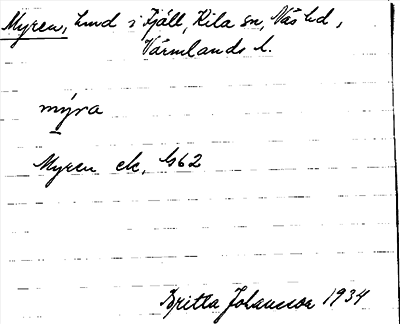 Myren, lmd i Fjäll, Kila sn, Näs hd,
Värmlands l.
myra
Myren ek. 462
Britta Johansson 1934